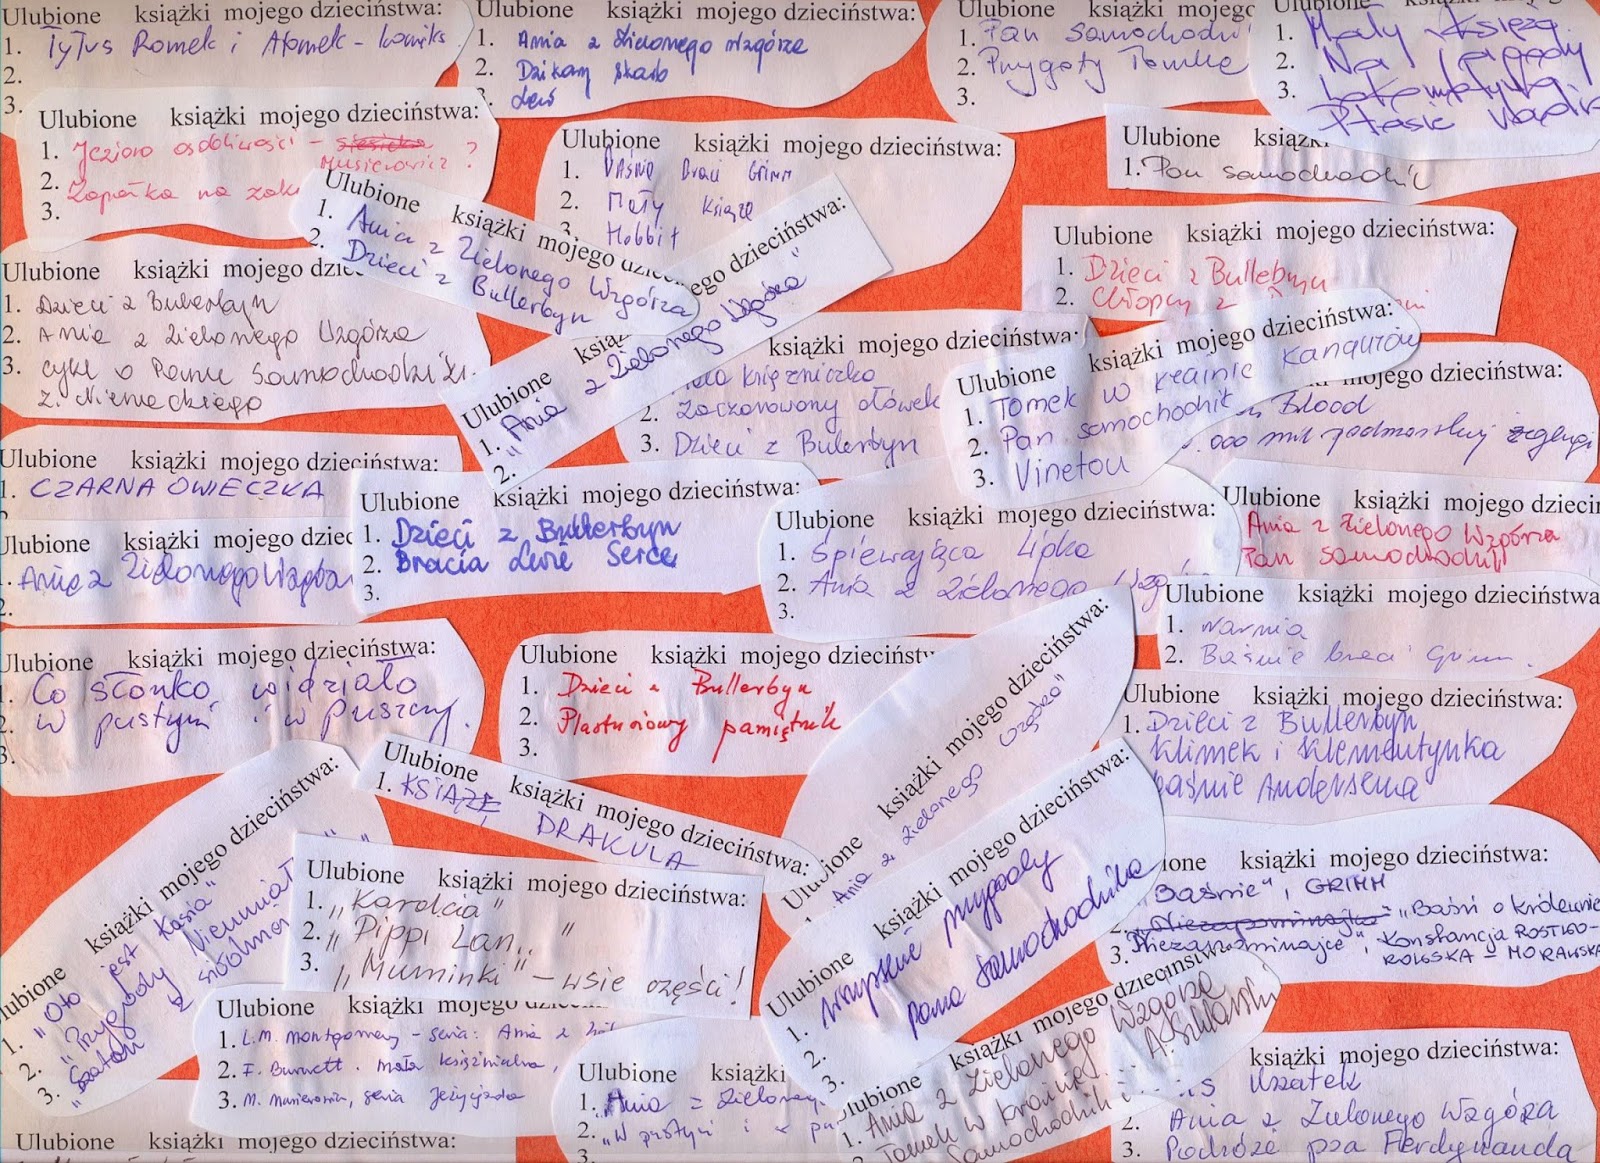 Ulubione książki mojego dzieciństwa:
1. Tytus Romek i Atomek - komiks
2.
3.
Ulubione książki mojego dzieciństwa:
1. Ania z Zielonego Wzgórza
2. Dzikom skarb
3.
Ulubione książki mojego
1. Pan Samochodzi
2. Przygody Tomka
3.
1. Mały Książę
2. Na jagody
3. Lokomotywa
Ptasie
Ulubione książki mojego dzieciństwa:
1. Jezioro osobliwości - Siesicka
Musierowicz ?
2. Zapałka na zak
3.
Ulubione książki mojego dzieciństwa:
1. Baśnie Braci Grimm
2. Mały Książę
3. Hobbit
Ulubione
1. Pan samochodzik
Ulubione książki mojego
1. Ania z Zielonego Wzgórza
2. Dzieci z Bullerbyn
Ulubione książki mojego dzieciństwa:
1. Dzieci z Bullebyn
2. Chłopcy z
Ulubione książki mojego
1. Dzieci z Bulerbyn
2. Ania z Zielonego Wzgórza
3. cykl o Panu Samochodziku
Z. Nienackiego
Ulubione dzieciństwa:
1. "Ania z Zielonego Wzgórza"
2.
książki mojego dzieciństwa:
księżniczka
2. Zaczarowany ołówek
3. Dzieci z Bulerbyn
Ulubione książki mojego dzieciństwa:
1. Tomek w krainie kangurów
2. Pan samochodzik
3. Vinetou
mojego dzieciństwa:
Blood
000 mil podmorskiej żeglugi
Ulubione książki mojego dzieciństwa:
1. CZARNA OWIECZKA
Ulubione książki mojego
1. Ania z Zielonego Wzgórza
2.
Ulubione książki mojego dzieciństwa:
1. Dzieci z Bullerbyn
2. Bracia Lwie Serce
3.
Ulubione książki mojego dzieciństwa:
1. Śpiewająca lipka
2. Ania z Zielonego
3.
Ulubione książki mojego
Ania z Zielonego Wzgórza
Pan samochodzik
Ulubione książki mojego dzieciństwa
1. narnia
2. Baśnie braci Grimm.
Ulubione książki mojego dzieciństwa:
1. Co słonko widziało
2. w pustyni i w puszczy.
3.
Ulubione książki mojego dzieciństwa:
1. Dzieci z Bullerbyn
2. Plastusiowy pamiętnik
3.
Ulubione książki mojego dzieciństwa:
1. Ania z Zielonego Wzgórza"
Ulubione książki mojego dzieciństwa:
1. Dzieci z Bullerbyn
Klimek i Klementynka
baśnie Andersena
Ulubione książki mojego dzieciństwa:
1. "Oto jest Kasia"
2. "Przygody
3. "Szatan z siódmej
Ulubione książki mojego dzieciństwa:
1. KSIĄŻĘ DRAKULA
Ulubione książki mojego dzieciństwa:
1. "Karolcia"
2. "Pippi Lan.."
3. "Muminki" - wsie części!
Ulubione książki mojego dzieciństwa:
1. wszystkie przygody
2. Pana Samochodzika
3.
książki mojego dzieciństwa:
"Baśnie", GRIMM
2. "Niezapominajka" "Baśń o królewnie
3. Niezapominajce", Konstancja ROSTWO-
ROWSKA - MORAWSKA
Ulubione książki mojego
1. L.M. Montgomery - seria: Ania z
2. F. Burnett. Mała księżniczka,
3. M. Musierowicz, seria Jeżycjada
Ulubione książki
1. "Ania z Zielonego
2. "W pustyni i w pu
3.
Ulubione książki mojego dzieciństwa:
1. Ania z Zielonego Wzgórza
Tomek w krainie
Samochodzik i
A. Szklarski
książki mojego dzieciństwa:
Uszatek
2. Ania z Zielonego Wzgórza
3. Podróże psa Ferdynanda
Ulubione książki mojego dzieciństwa: